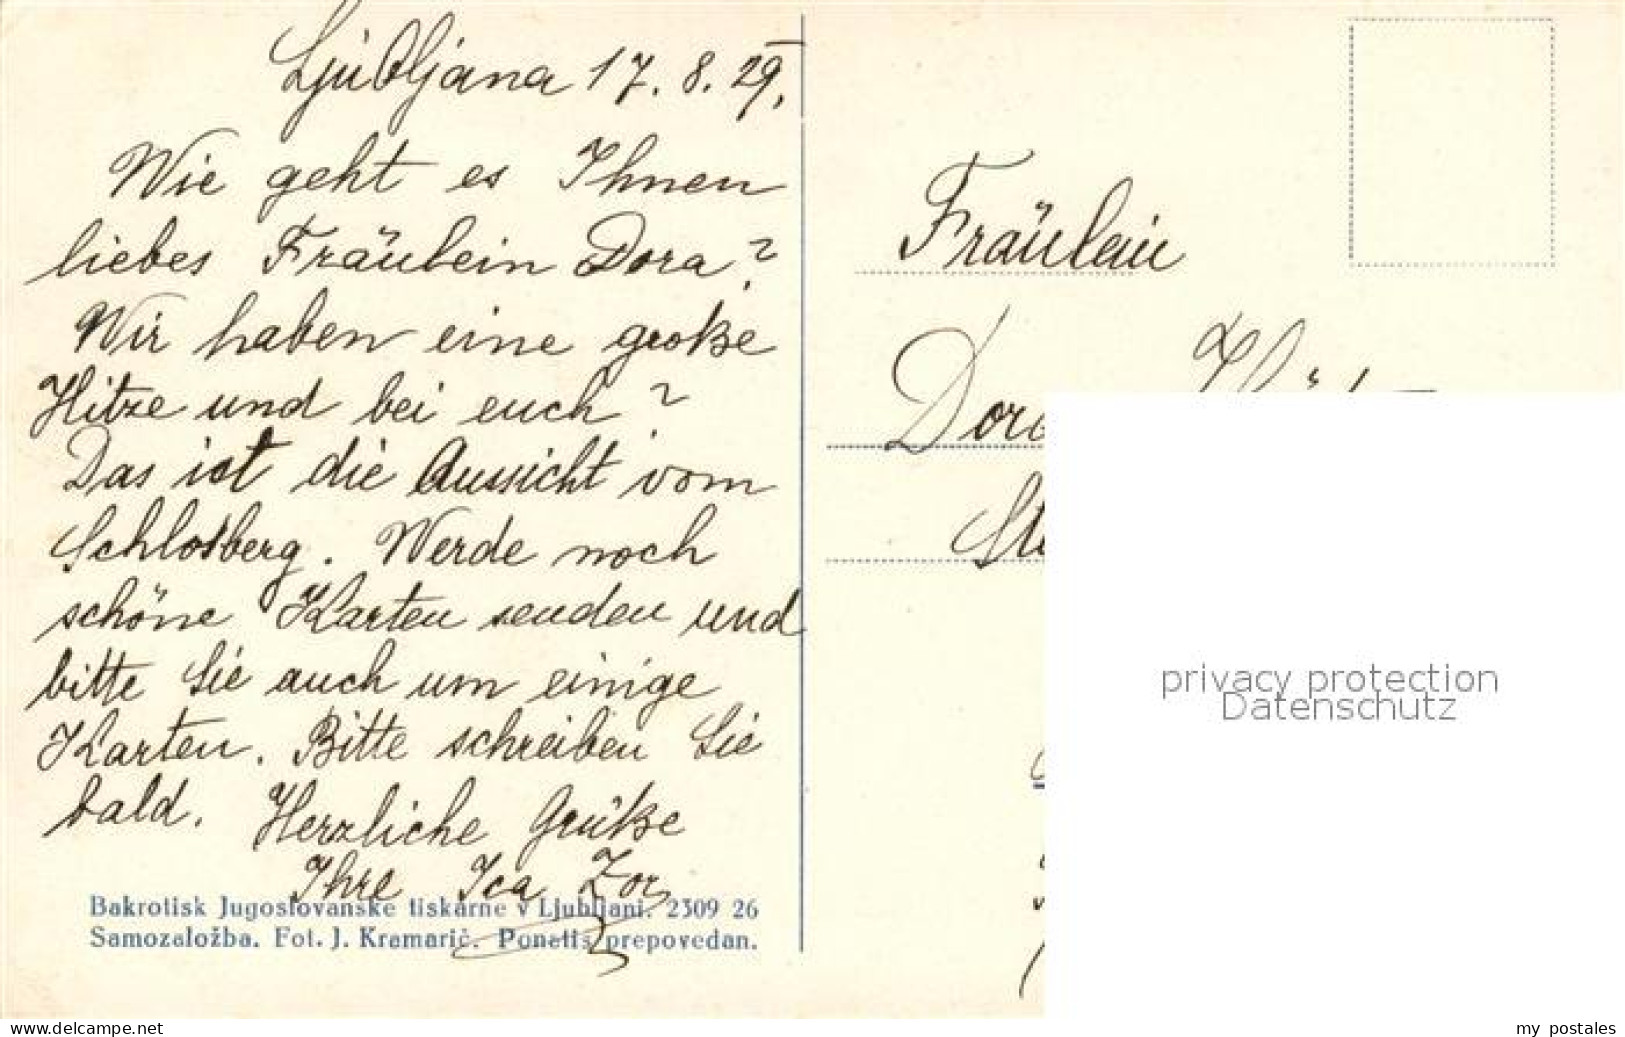 Ljubljana 17. 8. 29.
Wie geht es Ihnen
liebes Fräulein Dora?
Wir haben eine große
Hitze und bei euch?
Das ist die Aussicht vom
Schloßberg. Werde noch
schöne Karten senden und
bitte Sie auch um einige
Karten. Bitte schreiben Sie
bald. Herzliche Grüße
Ihre Ica Zor
Bakrotisk Jugoslovanske tiskarne v Ljubljani. 2309 26
Samozaložba. Fot. J. Kramarič. Ponatis prepovedan.
Fräulein
privacy protection
Datenschutz
www.delcampe.net
my_postales